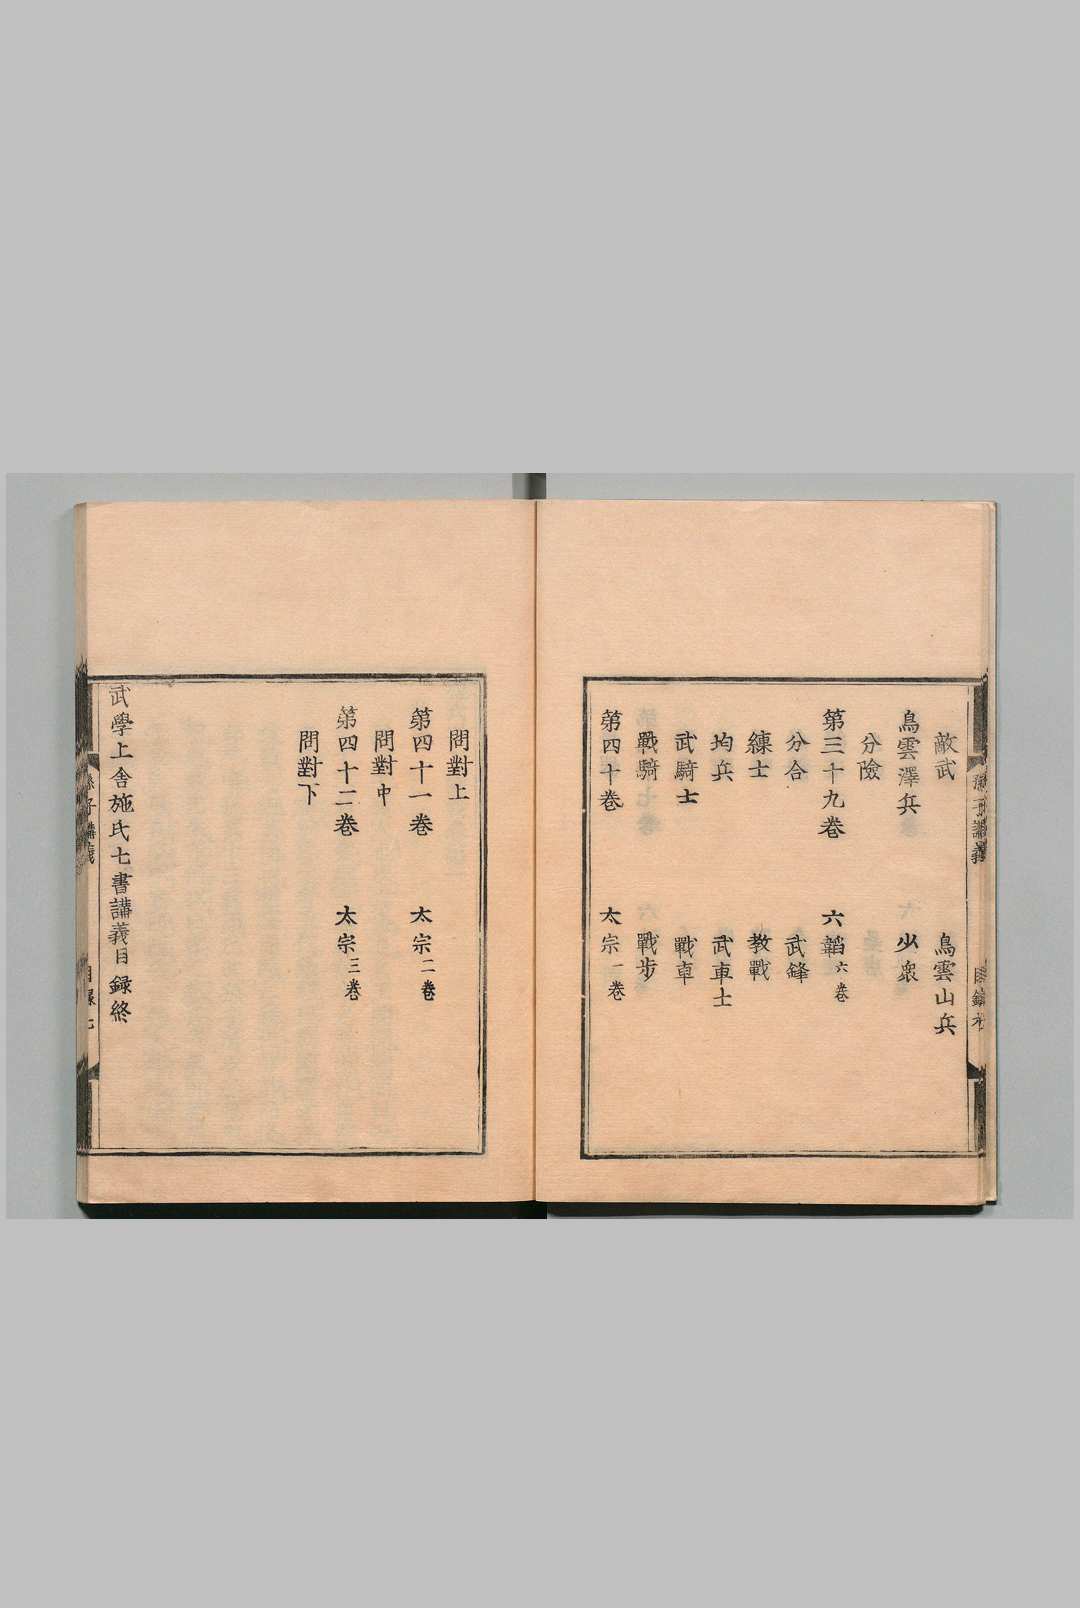 敵武　鳥雲山兵
鳥雲澤兵　少衆
分險
第三十九卷　六韜六卷
分合　武鋒
練士　教戰
均兵　武車士
武騎士　戰車
戰騎　戰步
第四十卷　太宗一卷
問對上
第四十一卷　太宗二卷
問對中
第四十二卷　太宗三卷
問對下
武學上舍施氏七書講義目録終